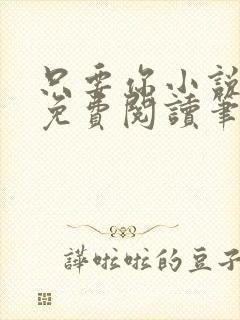 只要你小說
免費閱讀筆
譁啦啦的豆子